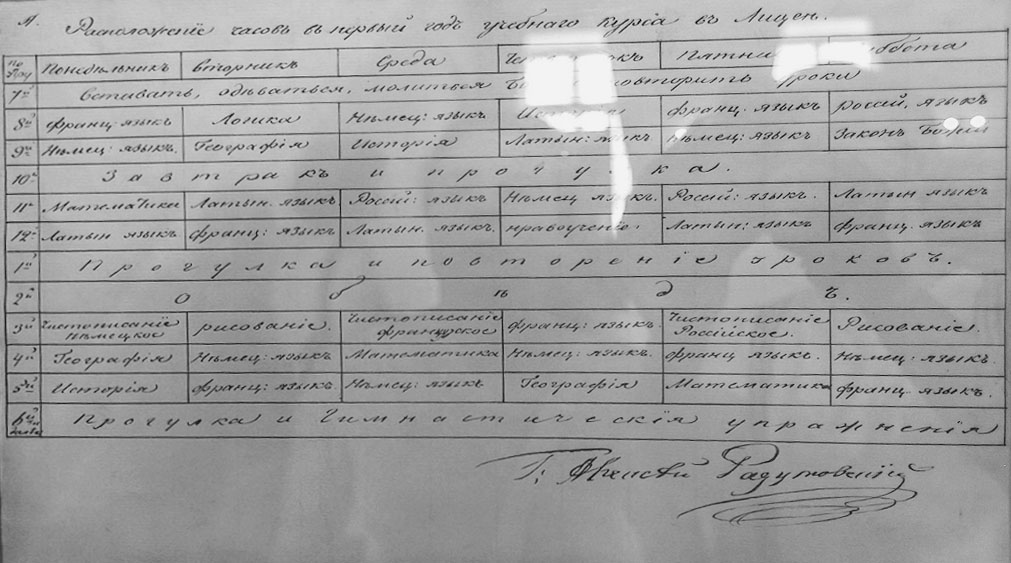 Расположенiе часовъ въ первый годъ учебнаго курса въ Лицеи.
по Понедѣльникъ Вторникъ Среда Пятни Суббота
7й Вставать, одѣваться, молиться повторить уроки
8й франц: языкъ Логика Нѣмец: языкъ Исторiя франц: языкъ россiй, языкъ
9й Нѣмец: языкъ. Географiя Исторiя Латын: языкъ нѣмец: языкъ Законъ Божiй
10й Завтракъ и прогулка.
11й Математика Латын. языкъ Россiй: языкъ Нѣмец языкъ. Россiй: языкъ. Латын языкъ
12й Латын языкъ франц: языкъ Латын. языкъ. нравоученiе. Латын: языкъ франц. языкъ
1й Прогулка и повторенiе уроковъ.
2й Обѣдъ.
3й Чистописанiе нѣмецкое рисованiе. Чистописанiе французское франц: языкъ. Чистописанiе Россiйское. Рисованiе.
4й Географiя Нѣмец: языкъ Математика Нѣмец: языкъ. франц языкъ. нѣмец: языкъ.
5й Исторiя франц: языкъ Нѣмец: языкъ Географiя Математика франц. языкъ.
6й Прогулка и Гимнастическiя упражненiя